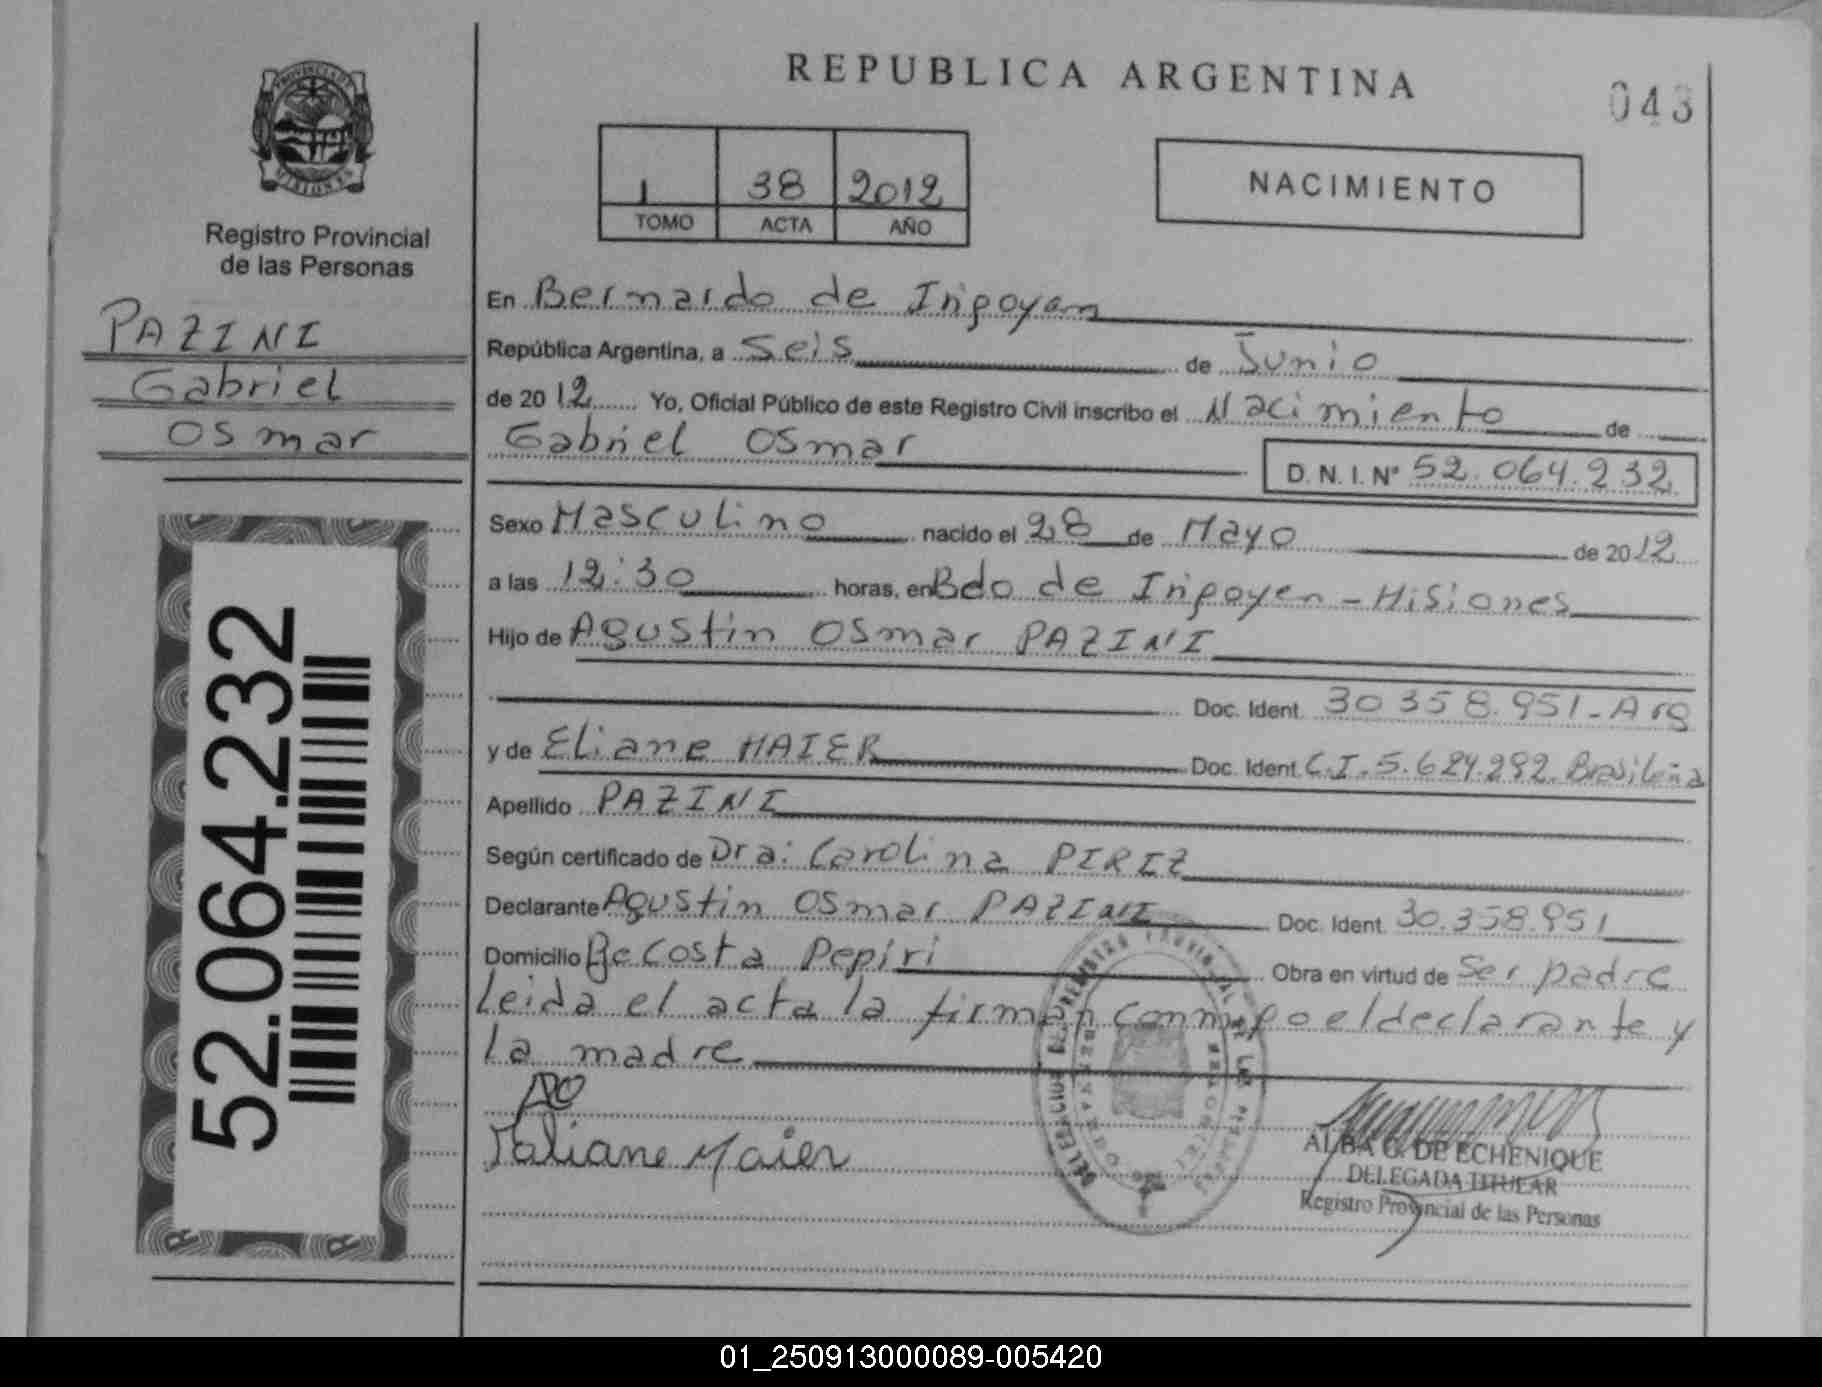 REPUBLICA ARGENTINA
043
PROVINCIA DE
MISIONES
Registro Provincial
de las Personas
PAZINI
Gabriel
Osmar
52.064.232
1 38 2012
TOMO ACTA AÑO
NACIMIENTO
En Bernardo de Irigoyen
República Argentina, a Seis de Junio
de 2012 Yo, Oficial Público de este Registro Civil inscribo el Nacimiento de
Gabriel Osmar D.N.I. Nº 52.064.232
Sexo Masculino nacido el 28 de Mayo de 2012
a las 12:30 horas, en Bdo de Irigoyen - Misiones
Hijo de Agustin Osmar PAZINI
Doc. Ident. 30 358.951 - Arg
y de Eliane MAIER Doc. Ident. C.I. 5.624.292 Brasileña
Apellido PAZINI
Según certificado de Dra: Carolina PIREZ
Declarante Agustin Osmar PAZINI Doc. Ident. 30.358.951
Domicilio Costa Pepiri Obra en virtud de Ser padre
Leida el acta la firman conmigo el declarante y
la madre
Maier
ALBA G. DE ECHENIQUE
DELEGADA TITULAR
Registro Provincial de las Personas
01_250913000089-005420